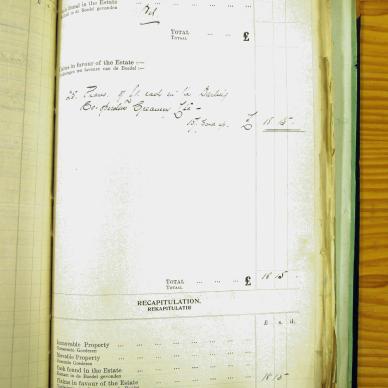 found in the Estate ... ...
in de Boedel gevonden
Nil
TOTAL ... ... ... £
TOTAAL
Claims in favour of the Estate :—
ten voordeele van de Boedel :—
25. Shares of £1 each in the
Co-operative Creamery Ltd —
£ 18 15 -
TOTAL ... ... ... £ 18 15 -
TOTAAL
RECAPITULATION.
REKAPITULATIE
£ s. d.
Immovable Property ... ...
Onroerende Goederen
Movable Property ... ...
Roerende Goederen
Cash found in the Estate ... ...
Kontant in de Boedel gevonden
Claims in favour of the Estate ... ... 18 15